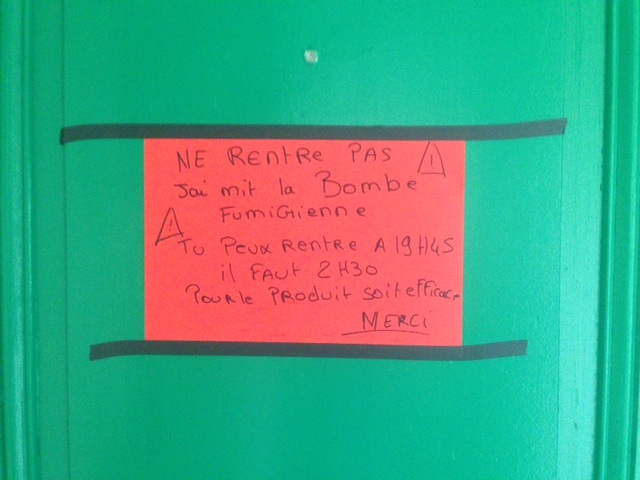 NE RENTRE PAS
J'ai mit la Bombe
FUMIGIENNE
TU PEUX RENTRE A 19H45
il FAUT 2H30
POUR le PRODUIT SOIT EFFICACE
MERCI